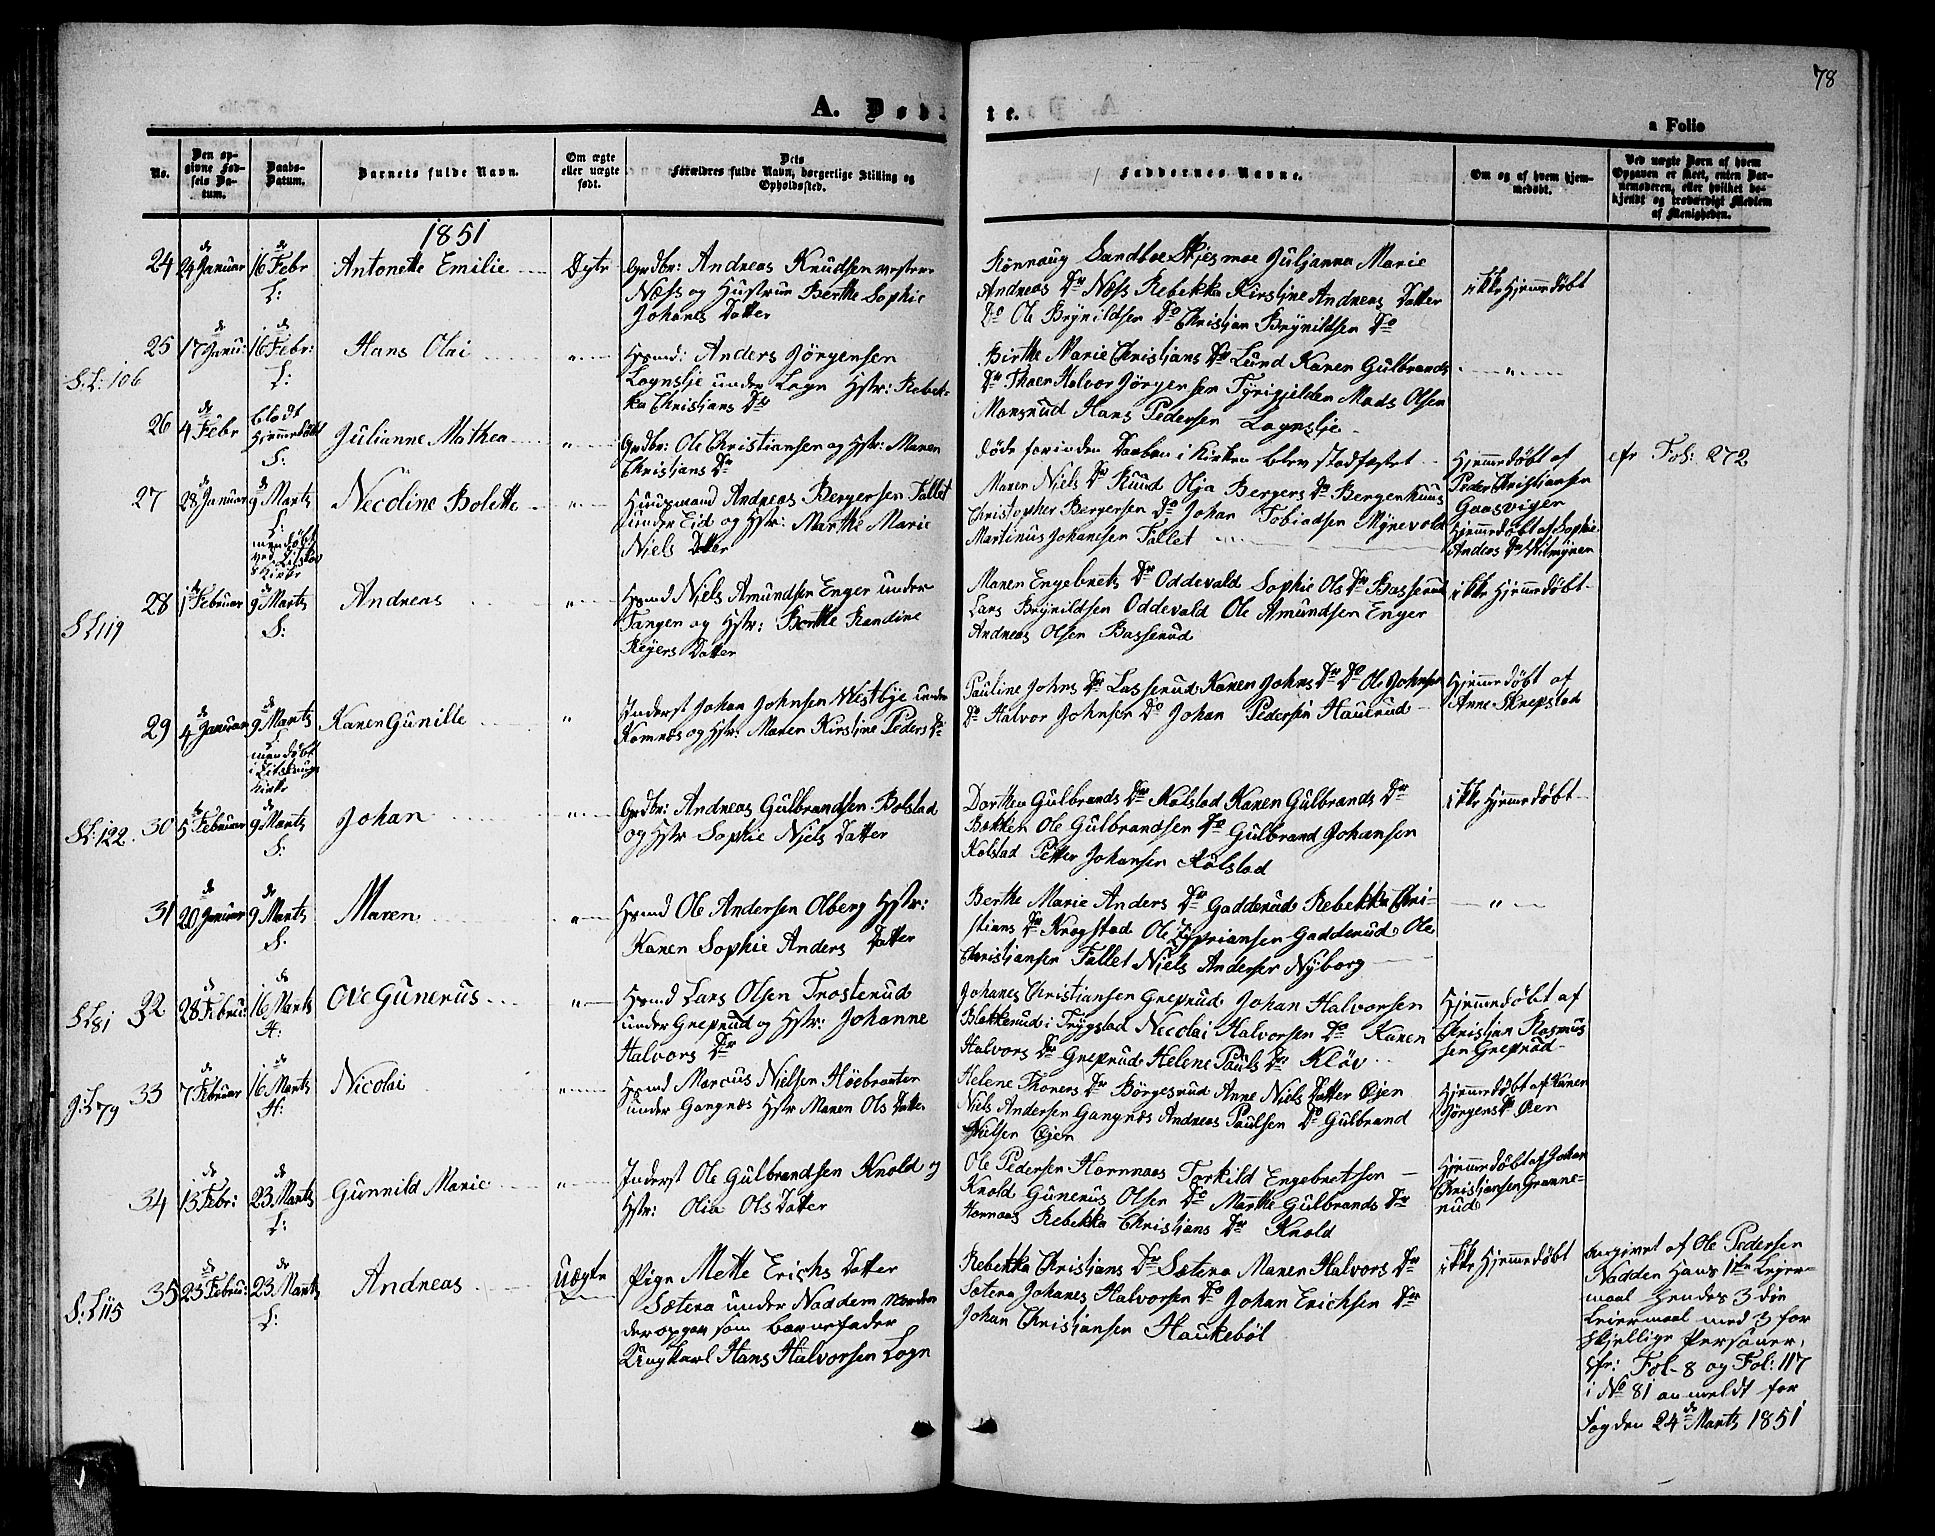 78
A. Døbte.
a Folio
No.
Den opgivne Fødsels Datum.
Daabs-Datum.
Barnets fulde Navn.
Om ægte eller uægte født.
Dets Forældres fulde Navn, borgerlige Stilling og Opholdssted.
Faddernes Navne.
Om og af hvem hjemmedøbt.
Ved uægte Børn af hvem Opgaven er skeet, enten Barnemoderen, eller hvilket bekjendt og troværdigt Medlem af Menigheden.
1851
24 24 de Januar 16 de Febr L: Antonette Emilie Ægte
Grdbr: Andreas Knudsen vestre
Næss og Hustrue Berthe Sophie
Johanes Datter
Rønnaug Sandboe Skjesmoe Juljanna Marie
Andreas Dr Næss Rebekka Kirstine Andreas Datter
Do Ole Brynildsen Do Christian Brynildsen Do
ikke Hjemmedøbt
S.L: 106
25 17 de Janu: 16 de Febr: L: Hans Olai "
Hsmd: Anders Jörgensen
Lognslje under Logn Hstr: Rebek-
ka Christians Dr
Birthe Marie Christjans Dr Lund Karen Gulbrands
Dr Thaer Halvor Jörgensen Tyrigjelden Mads Olsen
Mansrud Hans Pedersen Lognslje
"
26 4 de Febr blot Hjemmedøbt S: Julianne Mathea "
Grdbr: Ole Christiansen og Hstr: Maren
Christians Dr
døde forinden Daaben i Kirken blev stadfæstet
Hjemmedøbt af
Peder Christiansen
Gaasviger
cfr Fol: 272
27 28 de Januar 9 de Marts L: Necoline Bolette "
mendøbt
ved
Kirke
Huusmand Andreas Bergersen Fallet
under Eid og Hstr: Marthe Marie
Niels Datter
Maren Niels Dr Ruud Olja Bergers Dr Bergerhuus
Christopher Bergersen Do Johan Tobiadsen Mynevold
Martinus Johansen Fallet
Hjemmedøbt af Sophie
Anders Dr Vilmyren
S L 119
28 1 de Februar 9 de Marts S: Andreas "
Hsmd Niels Amundsen Enger under
Tangen og Hstr: Berthe Randine
Reyers Datter
Maren Engebrets Dr Oddevald Sophie Ols Dr Basserud
Lars Brynildsen Oddevald Ole Amundsen Enger
Andreas Olsen Basserud
ikke Hjemmedøbt
29 4 de Januar 9 de Marts Karen Gunille "
mendøbt
i
Kirke
Inderst Johan Johnsen Westbye under
Romnæs og Hstr: Maren Kirstine Peders Dr
Pauline Johns Dr Lasserud Karen Johns Dr Do Ole Johnsen
Do Halvor Johnsen Do Johan Pedersen Hauerud
Hjemmedøbt af
Anne Skrepstad
S.L: 122.
30 5 te Februar 9 de Marts S: Johan "
Grdbr: Andreas Gulbrandsen Bolstad
og Hstr Sophie Niels Datter
Dorthea Gulbrands Dr Kolstad Karen Gulbrands Dr
Bækken Ole Gulbrandsen Do Gulbrand Johansen
Kolstad Petter Johansen Kolstad
ikke Hjemmedøbt
31 20 de Januar 9 de Marts S. Maren "
Hsmd Ole Andersen Olberg Hstr:
Karen Sophie Anders Datter
Berthe Marie Anders Dr Gadderud Rebekka Chri-
stians Dr Krogstad Ole Zypriansen Gadderud Ole
Christjansen Fallet Niels Andersen Nyborg
"
S L 81
32 28 de Febru: 16 de Marts H: Ove Gunerus "
Hsmd Lars Olsen Trosterud
under Greprud og Hstr: Johanne
Halvors Dr
Johanes Christiansen Greprud Johan Halvorsen
Blekkerud i Trygstad Necolai Halvorsen Do Karen
Halvors Dr Greprud Helene Pauls Dr Kløv
Hjemmedøbt af
Christian Rasmus
sen Greprud
S:L 79
33 7 de Februar 16 de Marts H: Nicolai "
Hsmd Marcus Nielsen Höebraaten
under Gangnæs Hstr Maren Ols Datter
Helene Thoners Dr Börgesrud Anne Niels Datter Øjen
Niels Andersen Gangnæs Andreas Paulsen Do Gulbrand
Nielsen Øjen
Hjemmedøbt af Karen
Jörgens Dr Øien
34 13 de Febr: 23 de Marts L: Gunnild Marie "
Inderst Ole Gulbrandsen Knold og
Hstr: Olia Ols Datter
Ole Pedersen Hornnaas Torkild Engebretsen
Knold Gunerus Olsen Do Marthe Gulbrands Dr
Hornaas Rebekka Christjans Dr Knold
Hjemmedøbt af Johan
Christjansen Granne-
rud
S: L 115
35 23 de Febru: 23 de Marts L: Andreas Uægte
Pige Mette Erichs Datter
Sætera under Naddem Moderen
der opgav som barnefader
Ungkarl Hans Halvorsen Logn
Rebekka Christjans Dr Sætera Maren Halvors Dr
Sætera Johanes Halvorsen Do Johan Erichsen Do
Johan Christjansen Haukeböl
ikke Hjemmedøbt
Angivet af Ole Pedersen
Nadden Hans 1ste Leier-
maal Hendes 3 die
Leiermaal med 3 for
skjellige Personer,
cfr: Fol. 8 og Fol: 117
i No 81 anmeldt for
Fogden 24 de Marts 1851